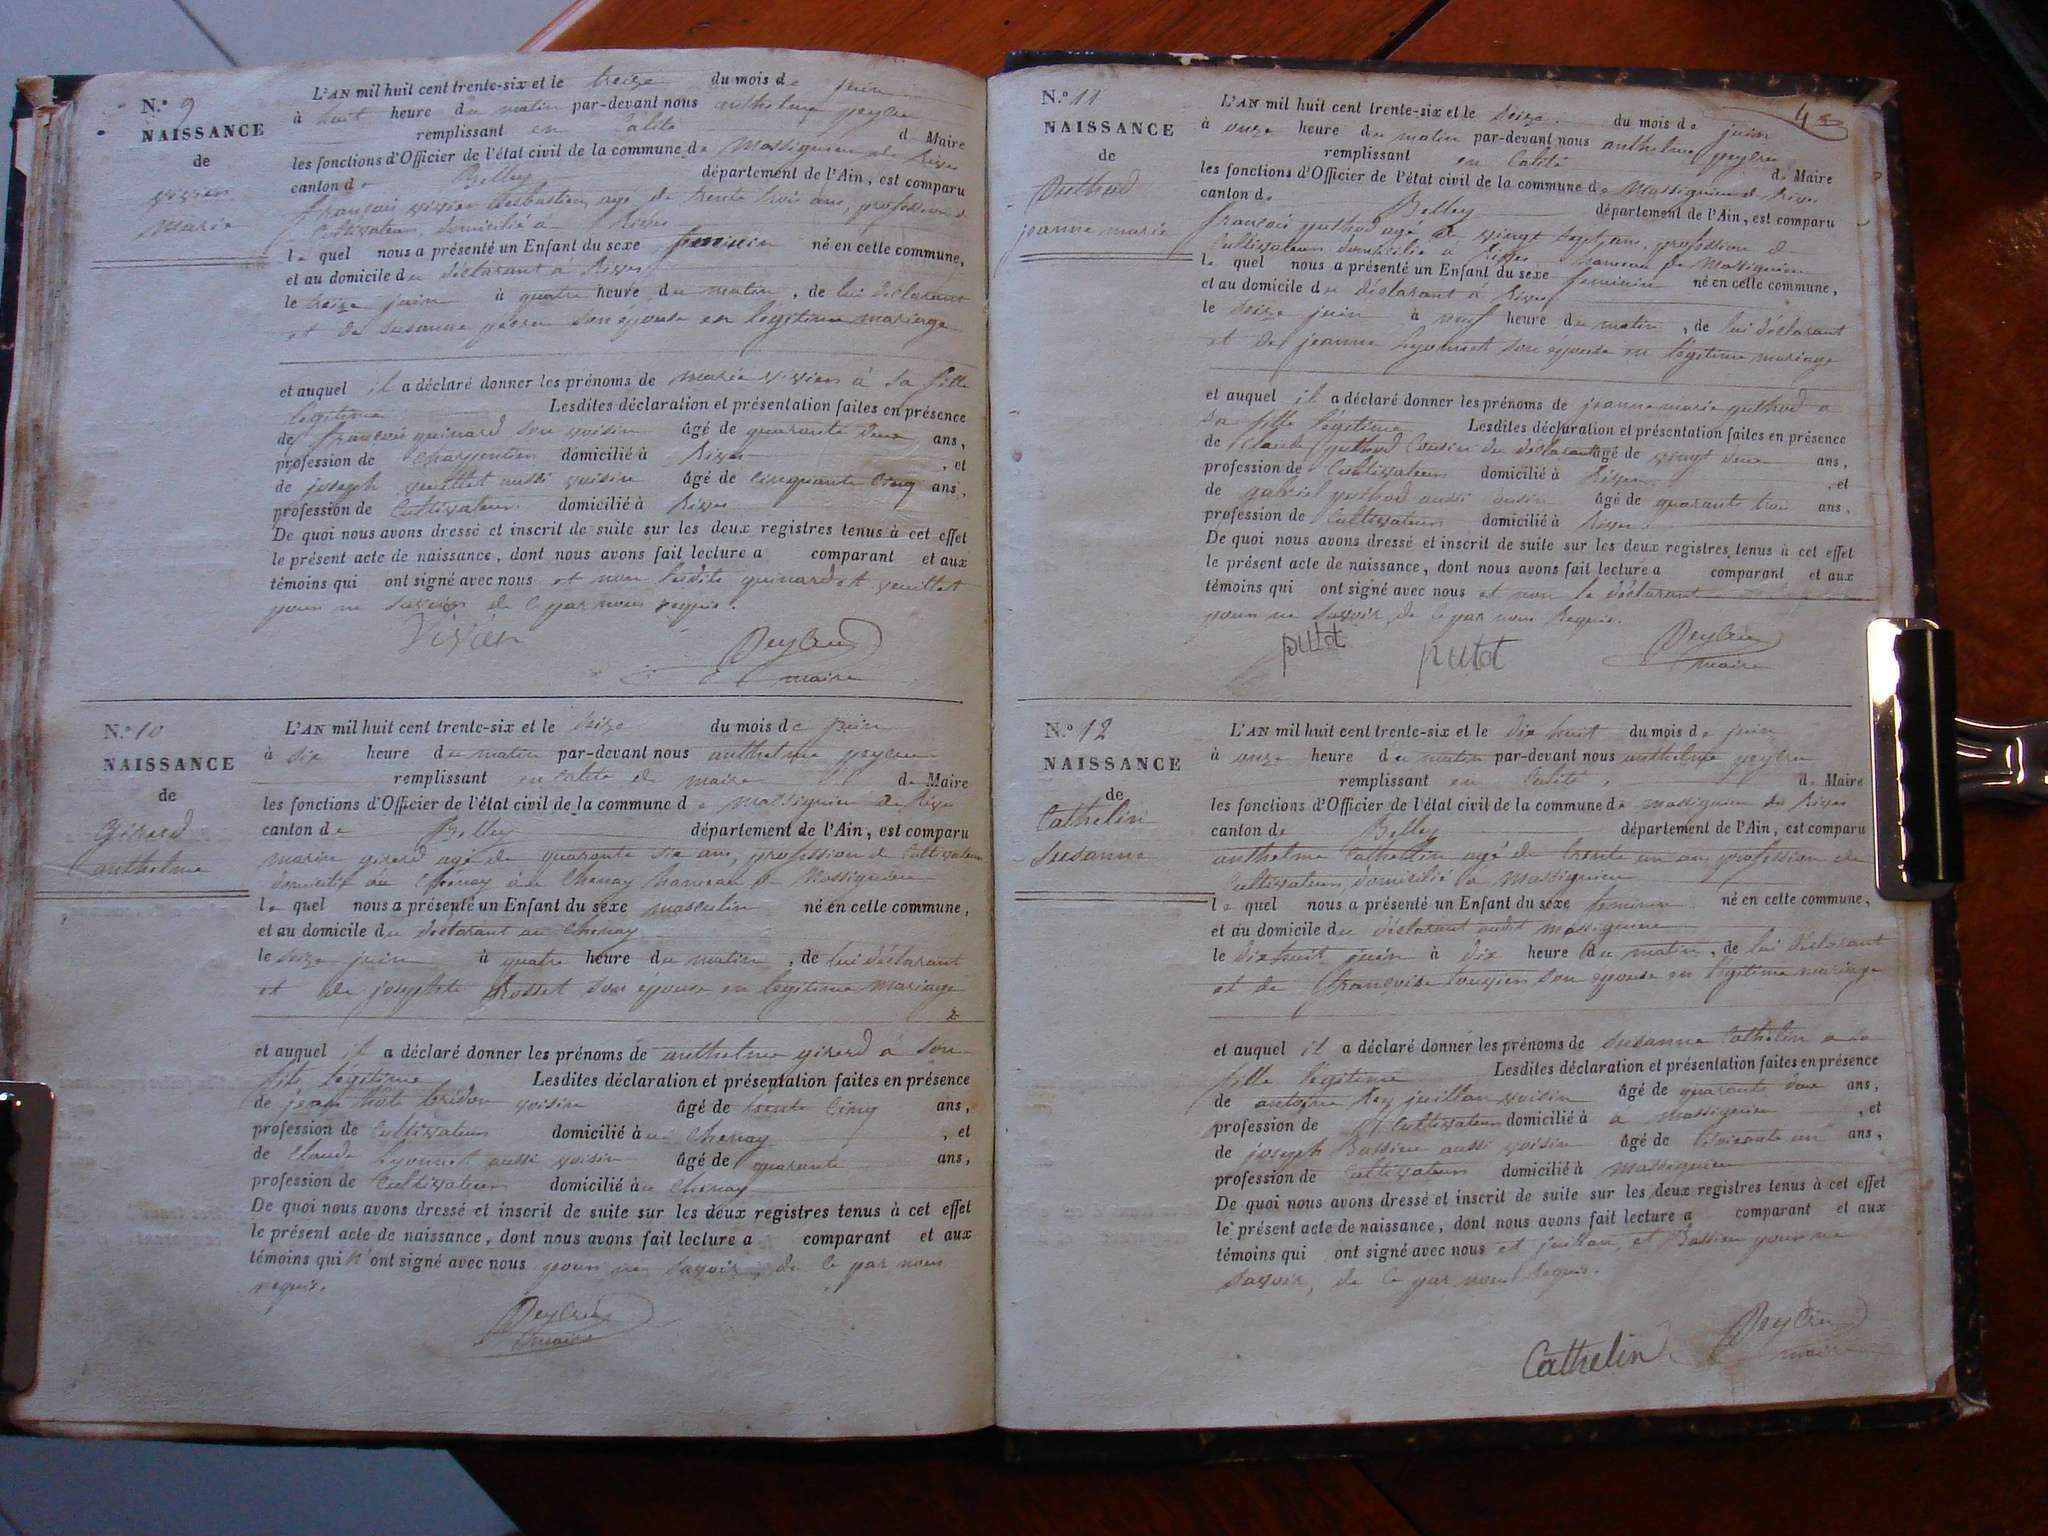 N.º 9
NAISSANCE
de
vivien
marie
L'AN mil huit cent trente-six et le treize du mois de juin
à huit heure du matin par-devant nous anthelme peyleu
remplissant en calité de Maire
les fonctions d'Officier de l'état civil de la commune de Massignieu de Rives
canton de Belley département de l'Ain, est comparu
françois vivien Sesbastien age de trente trois ans, profession de
Cultivateur, domicilié à Rives
le quel nous a présenté un Enfant du sexe feminin né en cette commune,
et au domicile du déclarant à Rives
le treize juin à quatre heure du matin, de lui déclarant
et de susanne son epouse en legitime mariage
et auquel il a déclaré donner les prénoms de marie vivien à sa fille
legitime Lesdites déclaration et présentation faites en présence
de françois guinard son voisin âgé de quarante deux ans,
profession de charpentier domicilié à Rives, et
de joseph veuillet aussi voisin âgé de cinquante cinq ans,
profession de Cultivateur domicilié à Rives
De quoi nous avons dressé et inscrit de suite sur les deux registres tenus à cet effet
le présent acte de naissance, dont nous avons fait lecture a comparant et aux
témoins qui ont signé avec nous et non lesdits guinard et veuillet
pour ne savoir de ce par nous requis.
Vivien
maire
N.º 10
NAISSANCE
de
Girard
anthelme
L'AN mil huit cent trente-six et le seize du mois de juin
à dix heure du matin par-devant nous anthelme peyleu
remplissant en calité de maire de Maire
les fonctions d'Officier de l'état civil de la commune de massignieu de Rives
canton de Belley département de l'Ain, est comparu
marin girard agé de quarante six ans, profession de Cultivateur
domicilié au Chenay hameau de Massignieu
le quel nous a présenté un Enfant du sexe masculin né en cette commune,
et au domicile du déclarant au Chenay
le seize juin à quatre heure du matin, de lui déclarant
et de josephte Rosset son épouse en legitime mariage
et auquel il a déclaré donner les prénoms de anthelme girard à son
fils légitime Lesdites déclaration et présentation faites en présence
de jean voisin âgé de trente cinq ans,
profession de Cultivateur domicilié au Chenay, et
de Claude Lyonnet aussi voisin âgé de quarante ans,
profession de Cultivateur domicilié au Chenay
De quoi nous avons dressé et inscrit de suite sur les deux registres tenus à cet effet
le présent acte de naissance, dont nous avons fait lecture a comparant et aux
témoins qui n'ont signé avec nous pour ne savoir, de ce par nous
requis.
maire
4
N.º 11
NAISSANCE
de
Puthod
jeanne marie
L'AN mil huit cent trente-six et le seize du mois de juin
à onze heure du matin par-devant nous anthelme peyleu
remplissant en calité de Maire
les fonctions d'Officier de l'état civil de la commune de Massignieu de Rives
canton de Belley département de l'Ain, est comparu
françois puthod agé de vingt sept ans, profession de
Cultivateur domicilié à Rives hameau de Massignieu
le quel nous a présenté un Enfant du sexe feminin né en cette commune,
et au domicile du déclarant à Rives
le seize juin à neuf heure du matin, de lui déclarant
et de jeanne Lyonnet son épouse en légitime mariage
et auquel il a déclaré donner les prénoms de jeanne marie puthod a
sa fille légitime Lesdites déclaration et présentation faites en présence
de claude puthod Cousin du déclarant âgé de vingt deux ans,
profession de Cultivateur domicilié à Rives, et
de gabriel puthod aussi cousin âgé de quarante trois ans,
profession de Cultivateur domicilié à Rives
De quoi nous avons dressé et inscrit de suite sur les deux registres tenus à cet effet
le présent acte de naissance, dont nous avons fait lecture a comparant et aux
témoins qui ont signé avec nous et non le déclarant
pour ne savoir, de ce par nous Requis.
putod putod
maire
N.º 12
NAISSANCE
de
Cathelin
Susanne
L'AN mil huit cent trente-six et le dix huit du mois de juin
à onze heure du matin par-devant nous anthelme peyleu
remplissant en calité de Maire
les fonctions d'Officier de l'état civil de la commune de massignieu de Rives
canton de Belley département de l'Ain, est comparu
anthelme Cathelin agé de trente un an profession de
Cultivateur, domicilié à Massignieu
le quel nous a présenté un Enfant du sexe feminin né en cette commune,
et au domicile du déclarant audit massignieu
le dix huit juin à dix heure du matin, de lui déclarant
et de françoise son epouse en légitime mariage
et auquel il a déclaré donner les prénoms de Susanne Cathelin a sa
fille légitime Lesdites déclaration et présentation faites en présence
de antoine Rey juillan voisin âgé de quarante deux ans,
profession de Cultivateur domicilié à à Massignieu, et
de joseph Bassieu aussi voisin âgé de soixante un ans,
profession de Cultivateur domicilié à Massignieu
De quoi nous avons dressé et inscrit de suite sur les deux registres tenus à cet effet
le présent acte de naissance, dont nous avons fait lecture a comparant et aux
témoins qui ont signé avec nous et juillan, et Bassieu pour ne
savoir, de ce par nous Requis.
Cathelin
maire